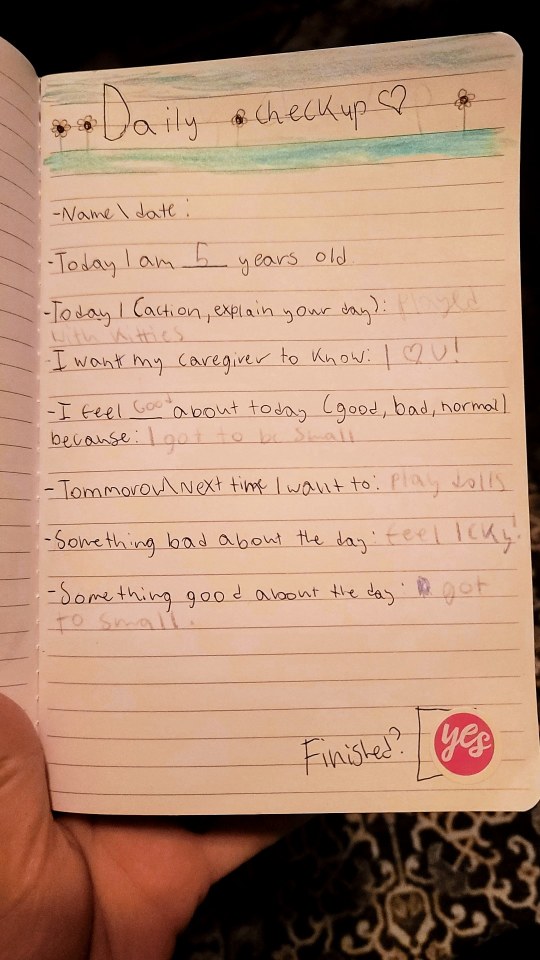 Daily checkup ♡
-Name\date:
-Today I am 5 years old
-Today I (action, explain your day): Played
with kitties
-I want my caregiver to know: I ♡ U!
-I feel Good about today (good, bad, normal)
because: I got to be small
-Tommorow\Next time I want to: Play dolls
-Something bad about the day: feel icky!
-Something good about the day: got
to small.
Finished? [yes